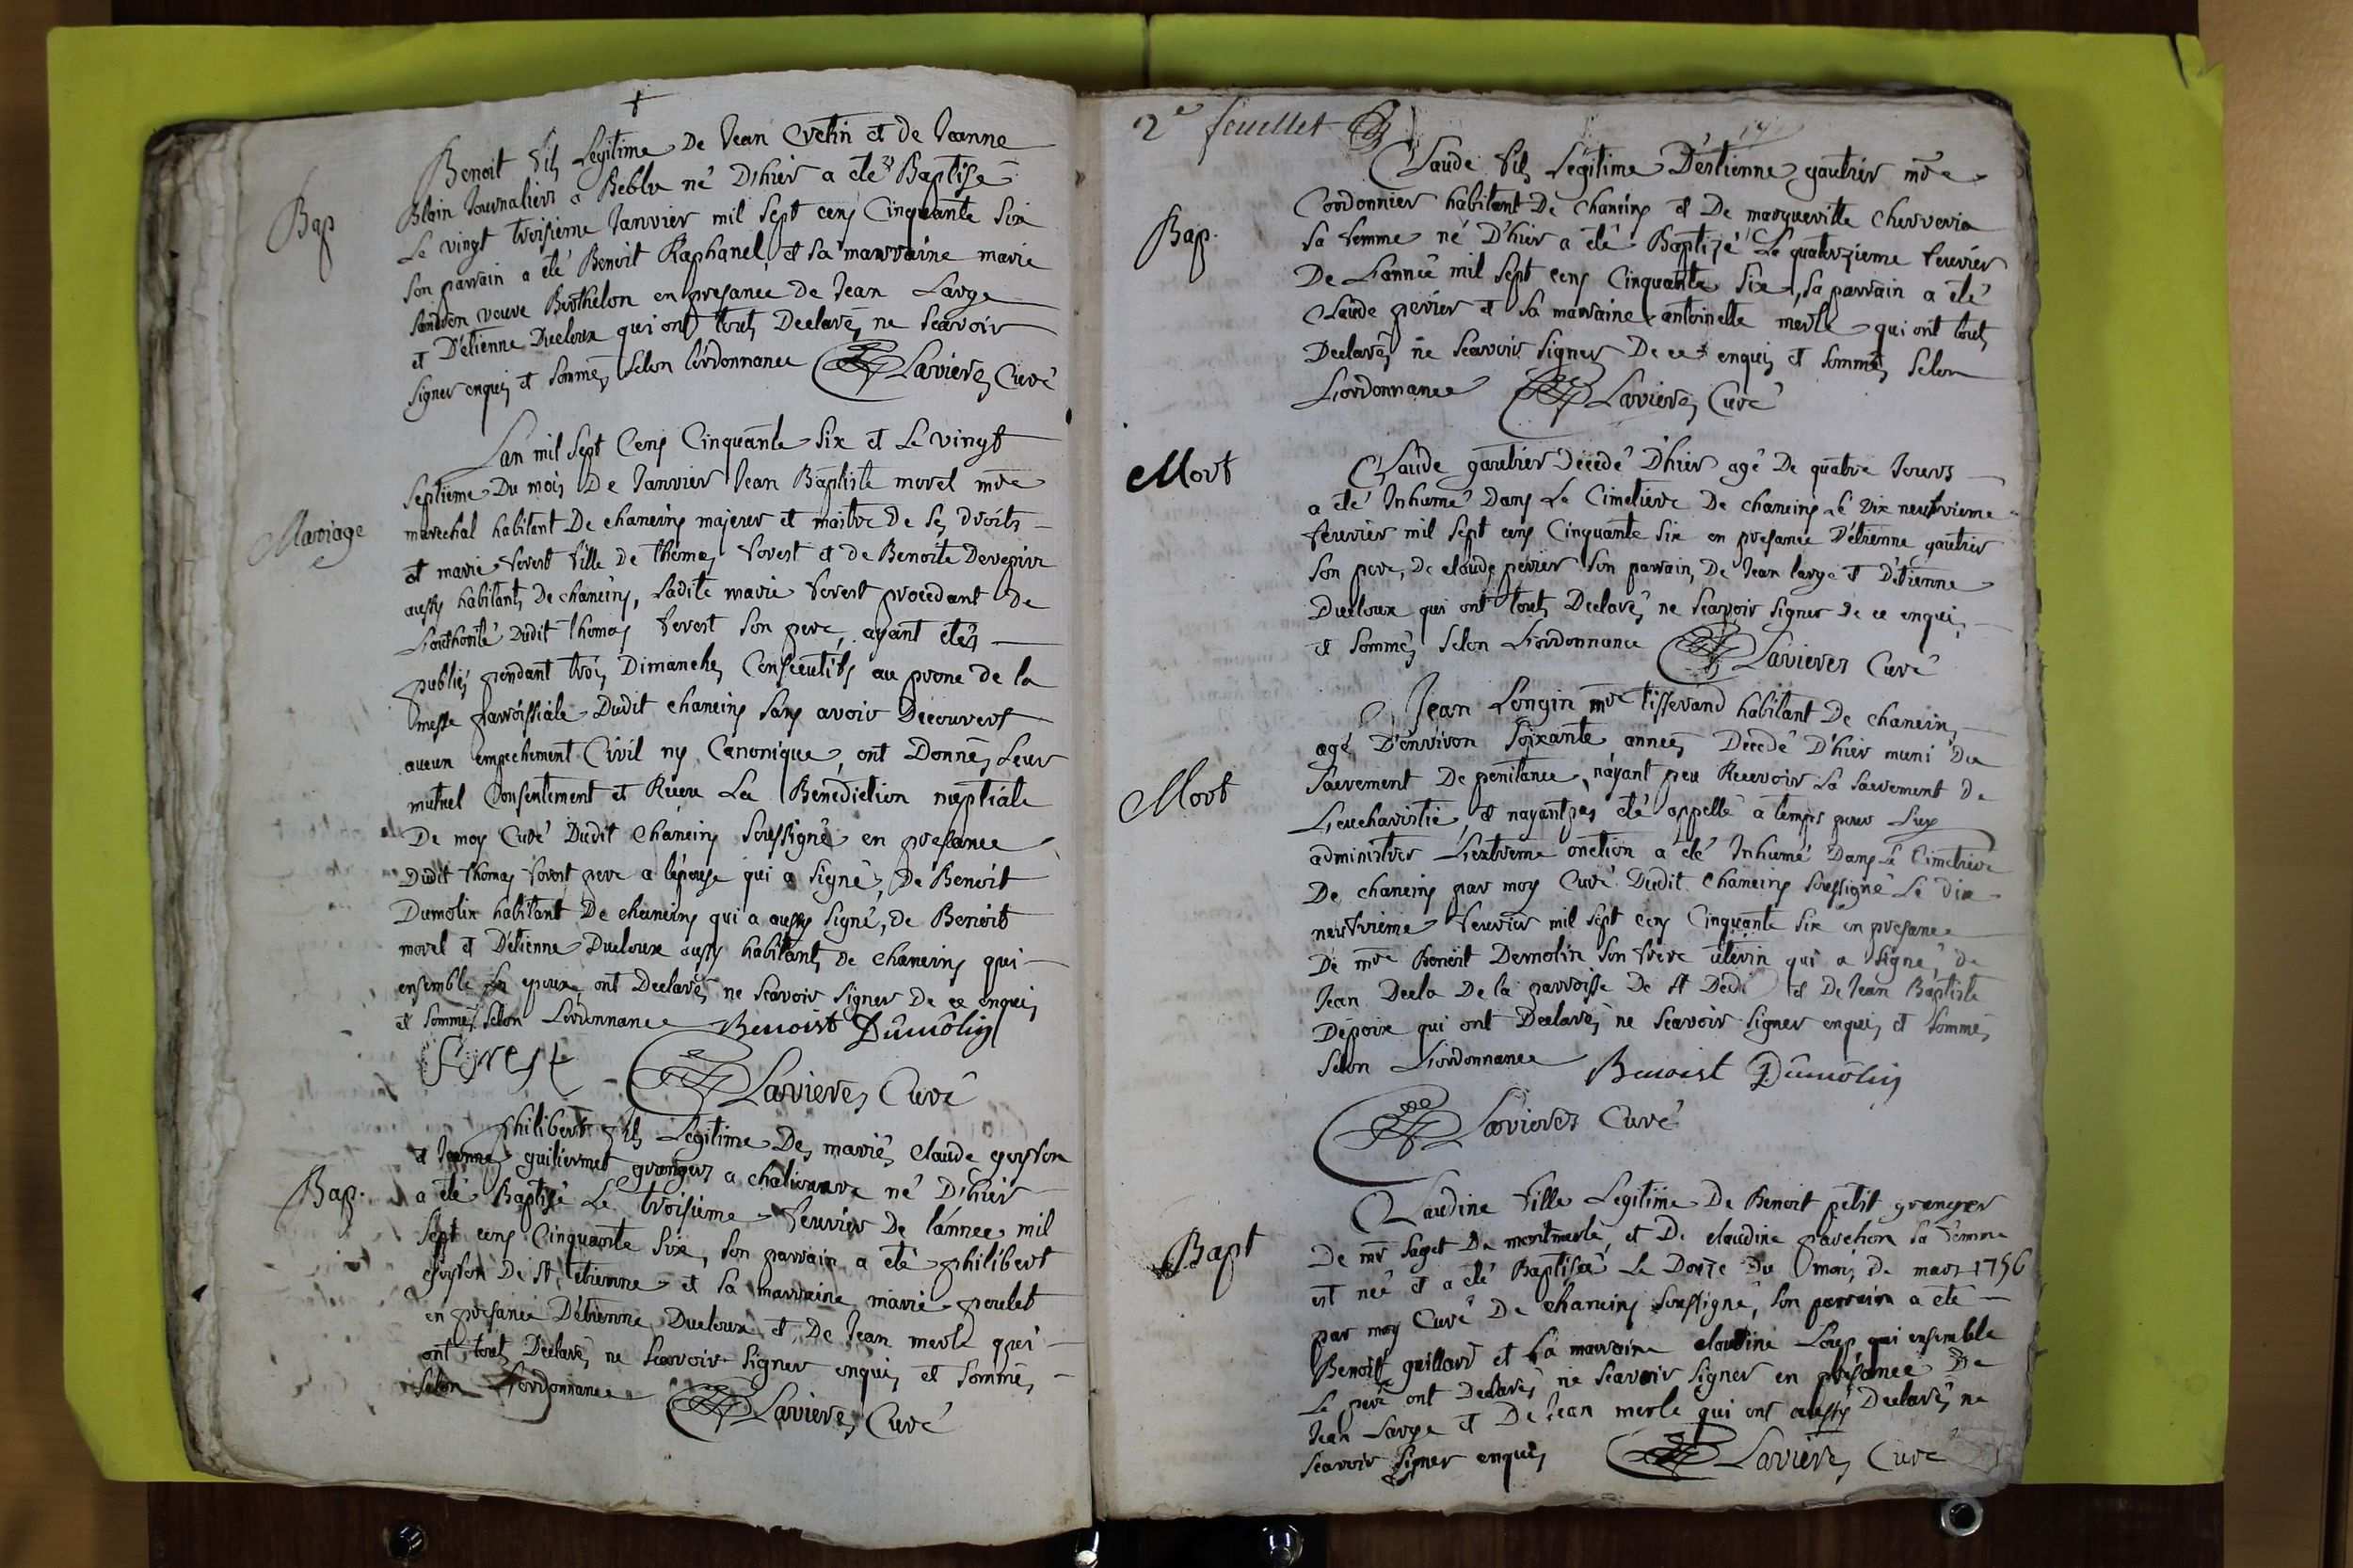 Bap
Benoit fils Legitime De Jean Cretin et de Jeanne
Blain Journaliers a Reble né D'hier a eté Baptisé
Le vingt troisieme Janvier mil sept cens Cinquante Six
Son parrain a été Benoit Raphanel, et sa marraine marie
veuve Berthelon en presance de Jean Large
et D'étienne Ducloux qui ont touts Declarés ne Scavoir
signer enquis et sommés selon L'ordonnance Larieres Curé
Mariage
Lan mil Sept Cens Cinquante Six et Le vingt
Septieme Du mois De Janvier Jean Baptiste morel mre
marechal habitant De chaneins majeur et maitre De Ses droits
et marie forest fille De thomas forest et de Benoite
aussy habitants De chaneins, Ladite marie forest procedant De
L'authorité Dudit thomas forest son pere, ayant etés
publiés pendant trois Dimanches Consecutifs au prone de la
messe parroissiale Dudit chaneins sans avoir Decouvert
aucun empechement Civil ny Canonique, ont Donnés Leur
mutuel Consentement et Recu La Benediction nuptiale
De moy Curé Dudit chaneins soussigné en presance
Dudit thomas forest pere a l'épouse qui a signé, De Benoit
Dumolin habitant De chaneins qui a aussy signé, De Benoit
morel et D'étienne Ducloux aussy habitants De chaneins qui
ensemble Les epoux ont Declarés ne Scavoir signer De ce enquis
et sommés selon L'ordonnance Benoist Dûmôlin
forest Larieres Curé
Bap.
philibert fils Legitime Des mariés claude goyfon
et Jeanne guiliermet grangers a né D'hier
a été Baptisé Le troisieme feuvrier De l'annee mil
sept cens Cinquante Six, son parrain a été philibert
goyfon De St etienne et sa marraine marie poulet
en presance D'étienne Ducloux et De Jean merle qui
ont touts Declarés ne Scavoir signer enquis et sommés
selon L'ordonnance Larieres Curé
2e feuillet
Bap.
Claude fils Legitime D'estienne gautier mre
Cordonnier habitant De chaneins et De margueritte
sa femme né D'hier a été Baptizé Le quatorzieme feuvrier
De L'année mil sept cens Cinquante Six, sa parrain a été
Claude perier et sa marraine antoinette merle qui ont touts
Declarés ne Scavoir signer De ce enquis et sommés selon
L'ordonnance Larieres Curé
Mort
Claude gautier Decedé D'hier agé De quatre Jours
a été Inhumé Dans Le Cimetiere De chaneins Le Dix neufvieme
feuvrier mil sept cens Cinquante Six en presance D'étienne gautier
son pere, De claude perier son parrain, De Jean large et D'étienne
Ducloux qui ont touts Declarés ne Scavoir signer De ce enquis
et sommés selon L'ordonnance Larieres Curé
Mort
Jean Longin mre tisserand habitant De chaneins
agé D'environ soixante années Decedé D'hier muni Du
sacrement De penitance, n'ayant peu Recevoir La sacrement de
L'eucharistie, et nayant pas été appellé a temps pour Luy
administrer L'extreme onction a été Inhumé Dans Le Cimetiere
De chaneins par moy Curé Dudit chaneins soussigné Le dix
neufvieme feuvrier mil sept cens Cinquante Six en presance
De mre Benoit Demolin son frere uterin qui a signé, De
Jean Decla De la parroisse De St et De Jean Baptiste
Depoix qui ont Declarés ne Scavoir signer enquis et sommés
selon L'ordonnance Benoist Dûmôlin
Larieres Curé
Bapt
Claudine fille Legitime De Benoit petit granger
De mr Saget De montmerle, et De claudine
sa femme
est née et a été Baptisée Le Doze Du mois De mars 1756
par moy Curé De chaneins soussigné, son parrain a été
Benoit guillard et sa marraine claudine Loup qui ensemble
Le pere ont Declarés ne Scavoir signer en présance De
Jean Large et De Jean merle qui ont aussy Declarés ne
Scavoir signer enquis Larieres Curé